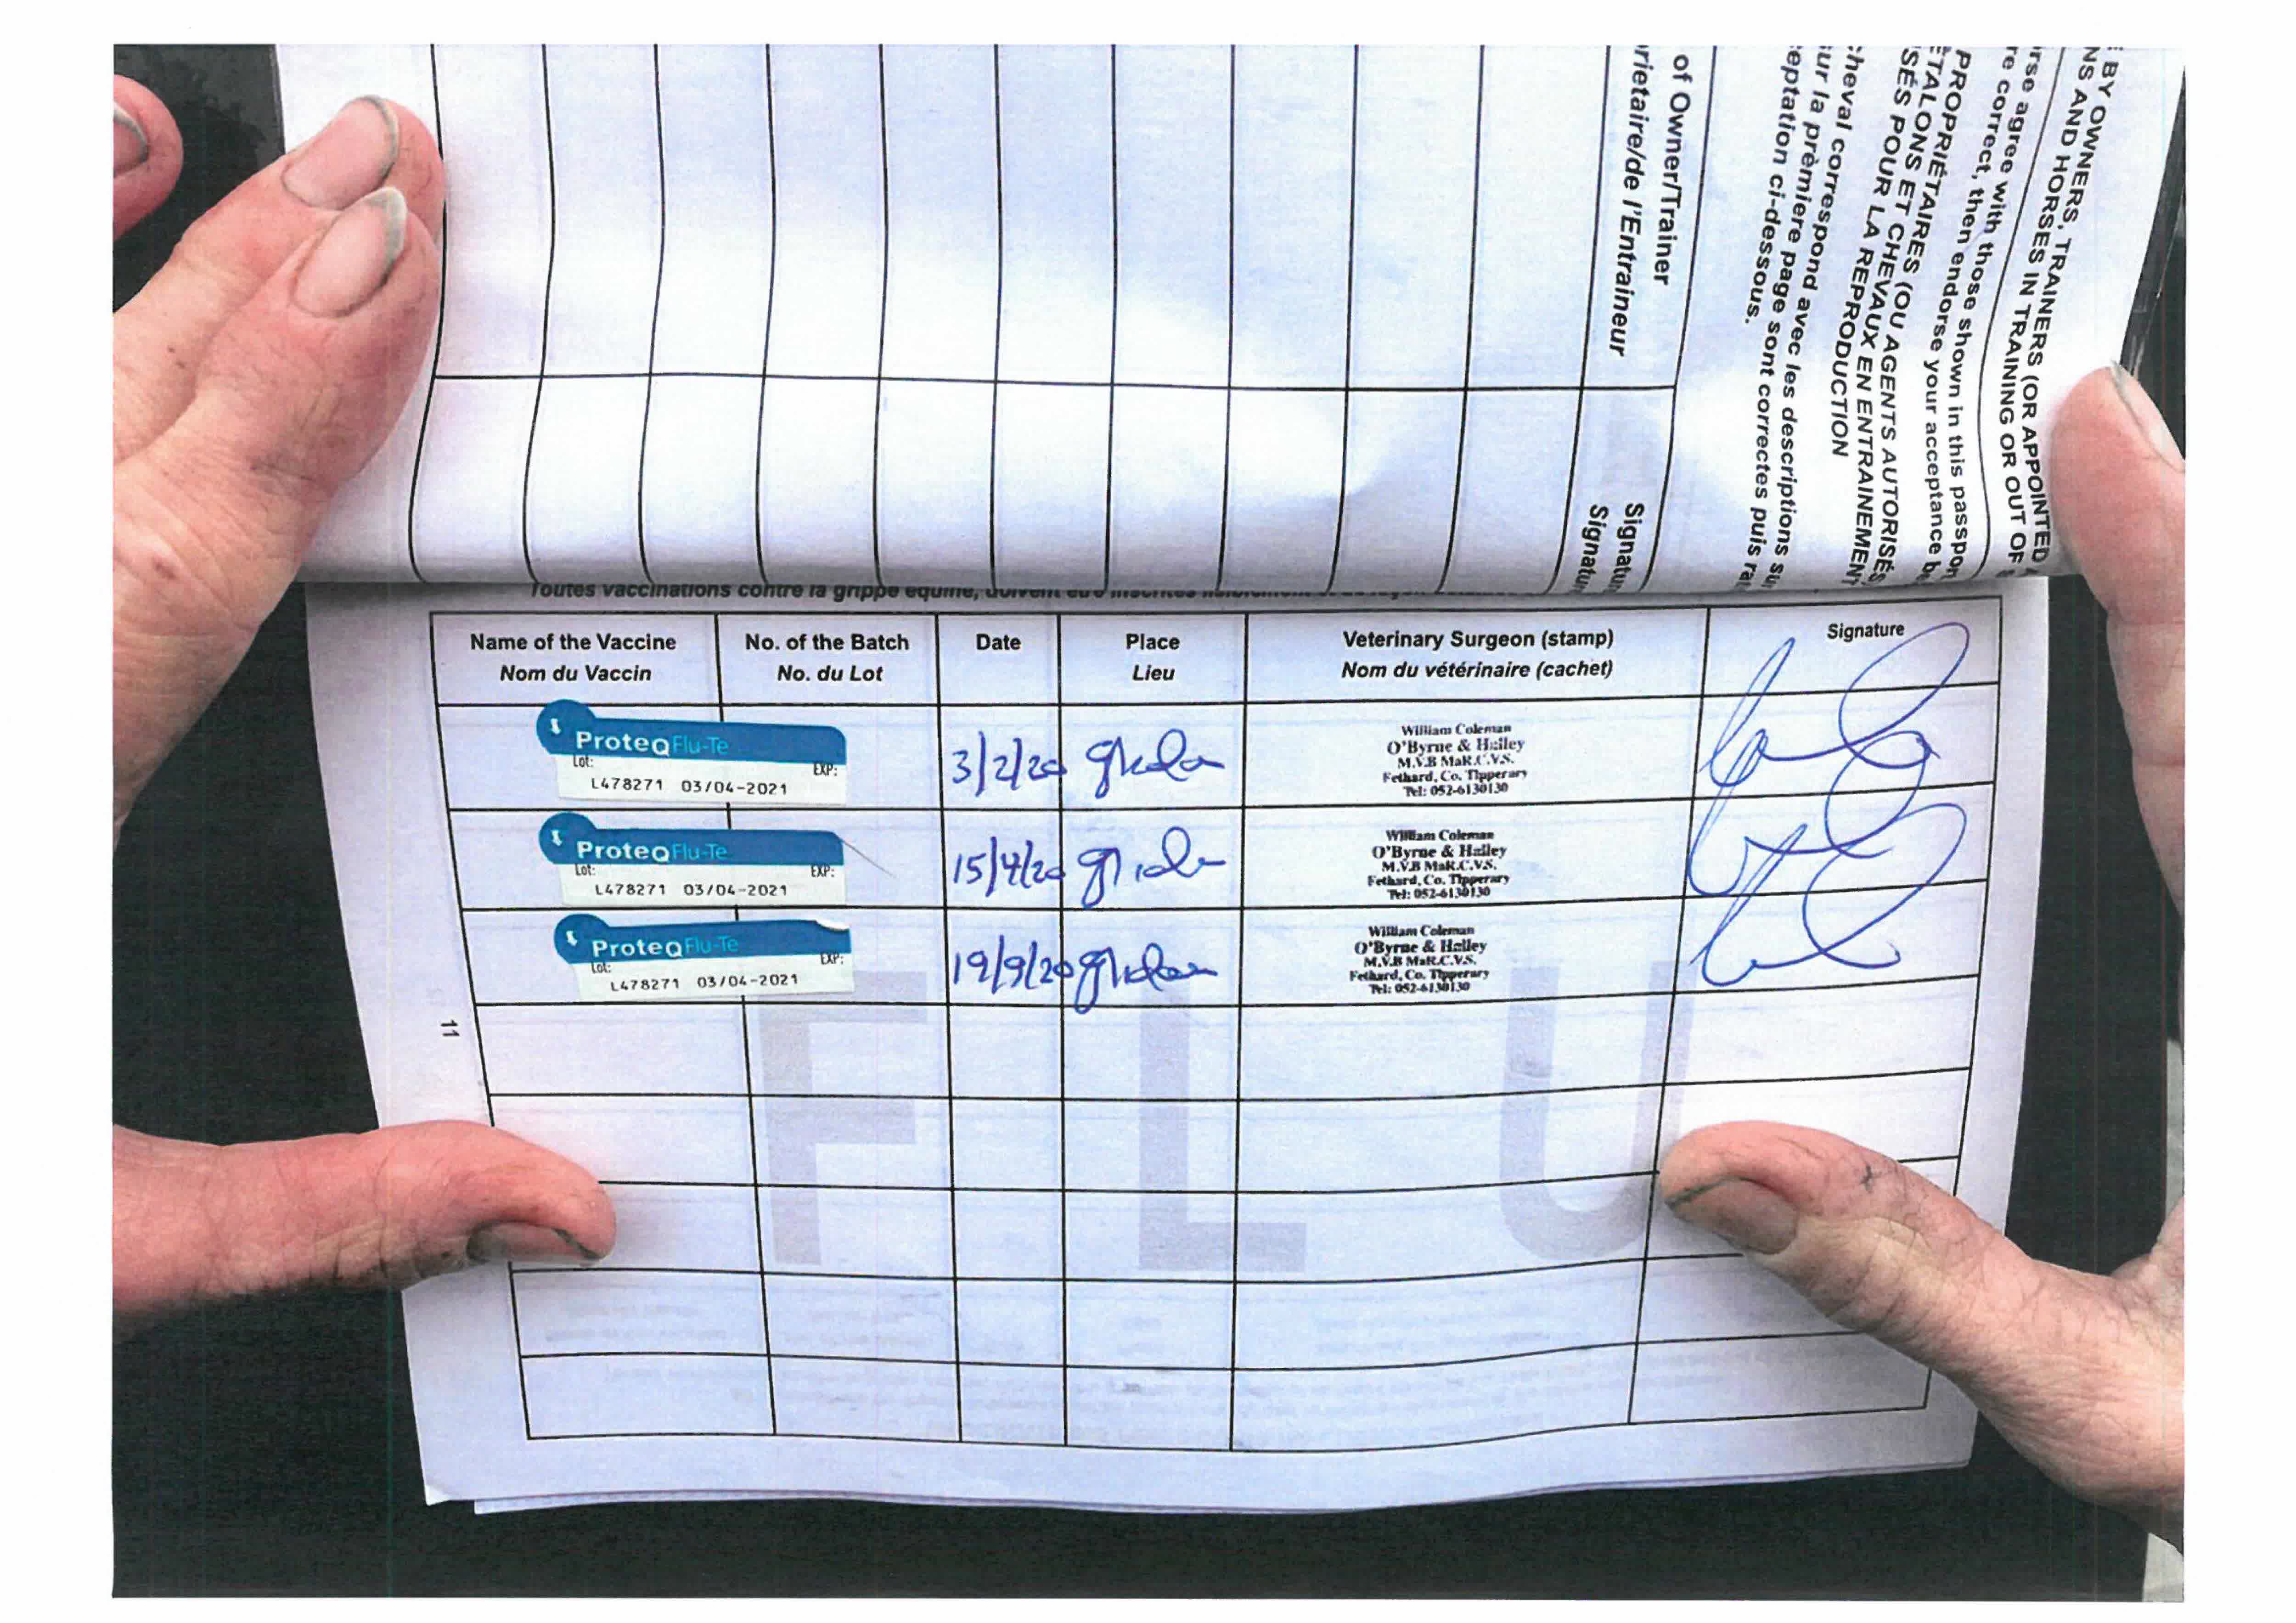 BY OWNERS, TRAINERS (OR APPOINTED
NS AND HORSES IN TRAINING OR OUT OF
rse agree with those shown in this passpor
re correct, then endorse your acceptance b
PROPRIÉTAIRES (OU AGENTS AUTORISÉS
ÉTALONS ET CHEVAUX EN ENTRAINEMENT
SÉS POUR LA REPRODUCTION
cheval correspond avec les descriptions su
ur la prèmiere page sont correctes puis ra
eptation ci-dessous.
of Owner/Trainer
rietaire/de l'Entraineur
Signatur
Signatur
Toutes vaccinations contre la grippe equine, doivent
Name of the Vaccine No. of the Batch Date Place Veterinary Surgeon (stamp) Signature
Nom du Vaccin No. du Lot Lieu Nom du vétérinaire (cachet)
ProteqFlu-Te
Lot: EXP:
L478271 03/04-2021
3/2/20
William Coleman
O'Byrne & Halley
M.V.B MaR.C.V.S.
Fethard, Co. Tipperary
Tel: 052-6130130
ProteqFlu-Te
Lot: EXP:
L478271 03/04-2021
15/4/20
William Coleman
O'Byrne & Halley
M.V.B MaR.C.V.S.
Fethard, Co. Tipperary
Tel: 052-6130130
ProteqFlu-Te
Lot: EXP:
L478271 03/04-2021
19/9/20
William Coleman
O'Byrne & Halley
M.V.B MaR.C.V.S.
Fethard, Co. Tipperary
Tel: 052-6130130
FLU
11